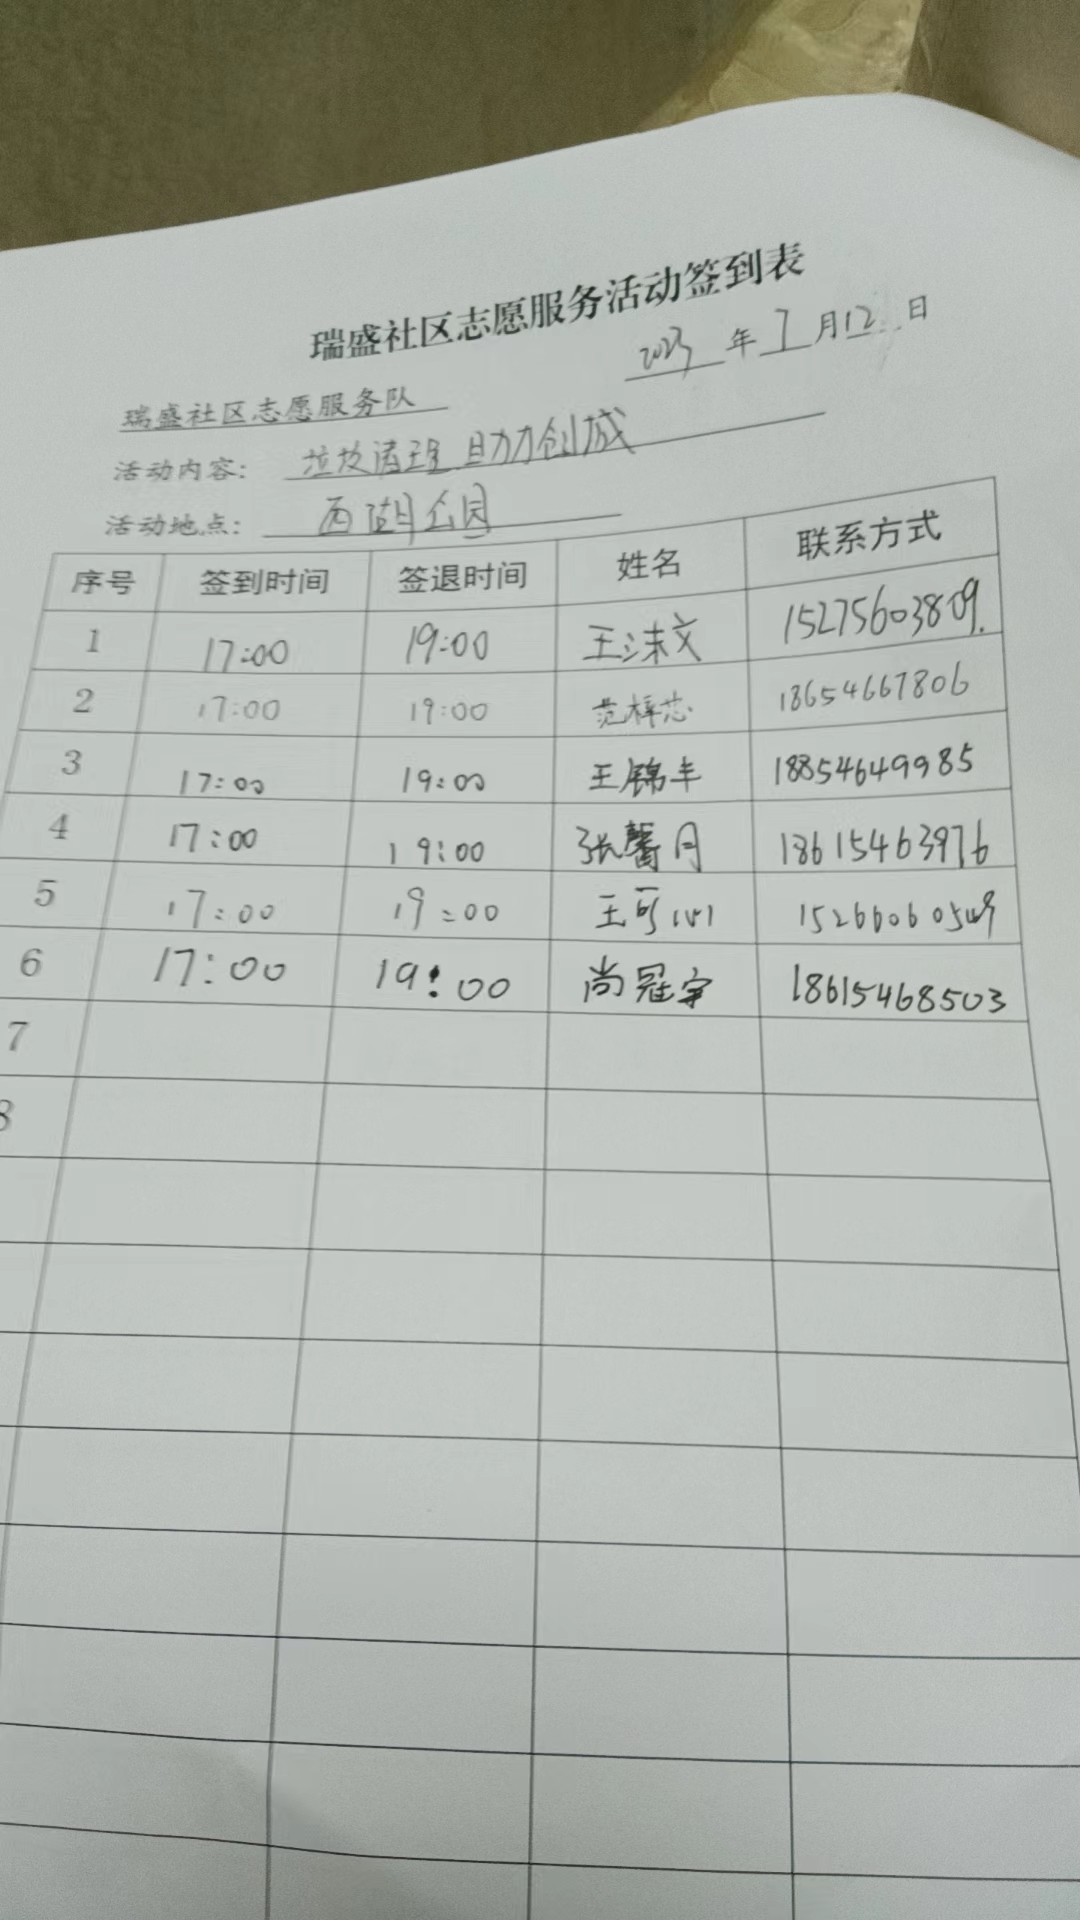 瑞盛社区志愿服务活动签到表
2023年7月12日
瑞盛社区志愿服务队
活动内容：垃圾清理 助力创城
活动地点：西湖公园
序号 签到时间 签退时间 姓名 联系方式
1 17:00 19:00 王沫文 15275603809.
2 17:00 19:00 范梓芯 18654667806
3 17:00 19:00 王锦丰 18854649985
4 17:00 19:00 张馨月 18615463976
5 17:00 19:00 王可心 15266060549
6 17:00 19:00 尚冠宇 18615468503
7
8